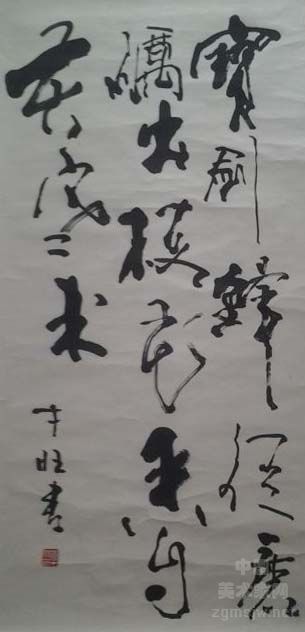 寶劍鋒從磨
礪出梅花香自
苦寒来
旺书
中国
美术家网
zgmsjw.com